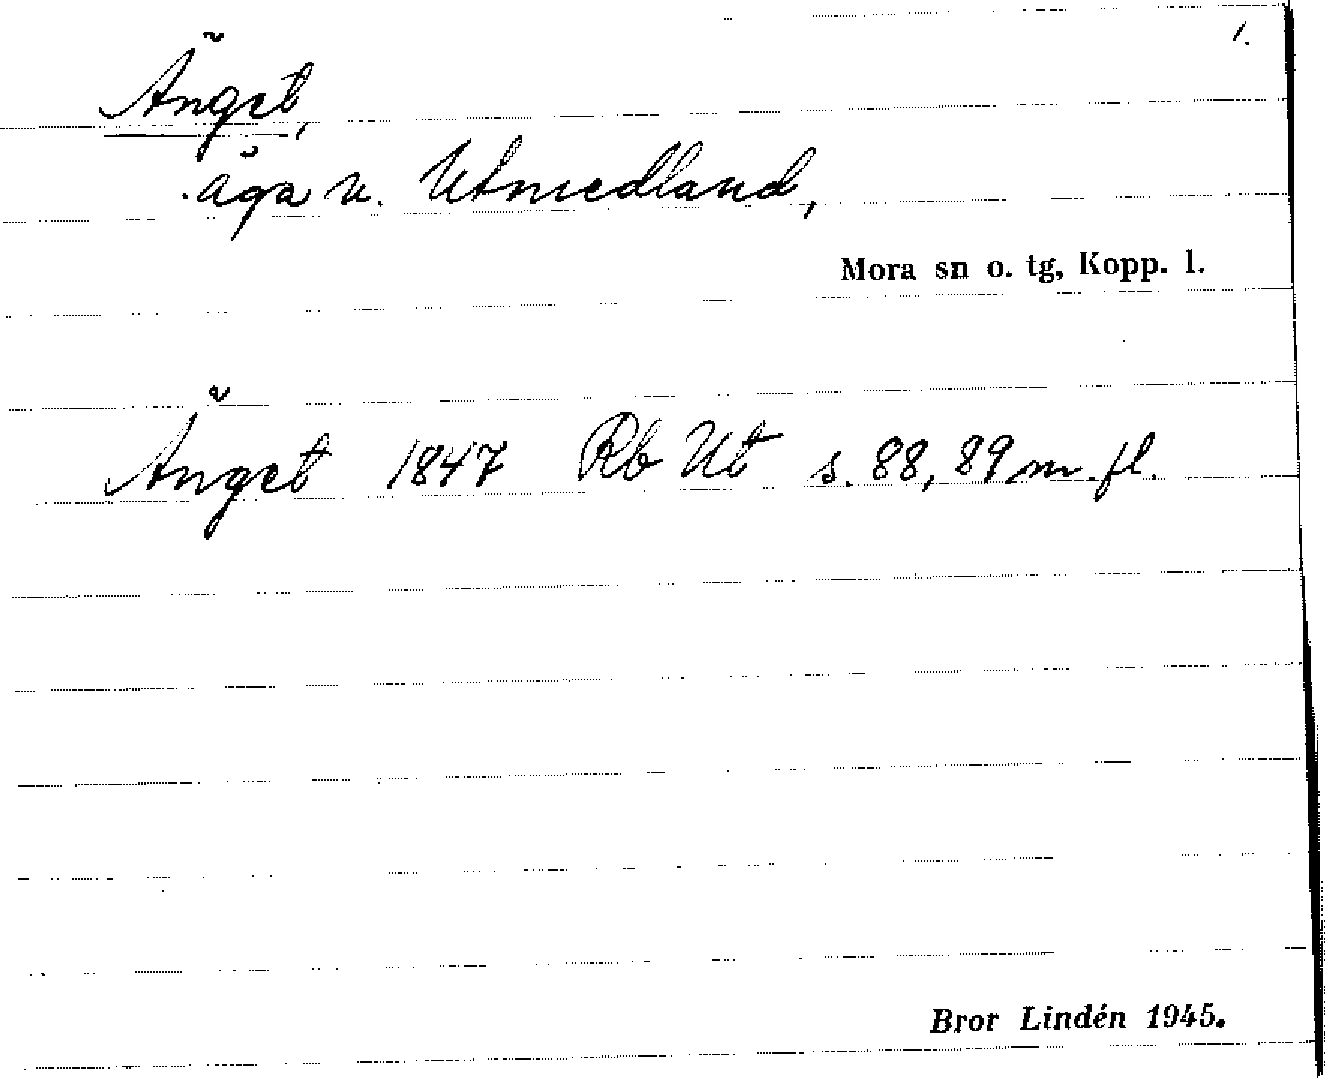 1.
Änget,
äga v. Utmedland,
Mora sn o. tg, Kopp. l.
Änget 1847 Rb Ut s. 88, 89 m. fl.
Bror Lindén 1945.